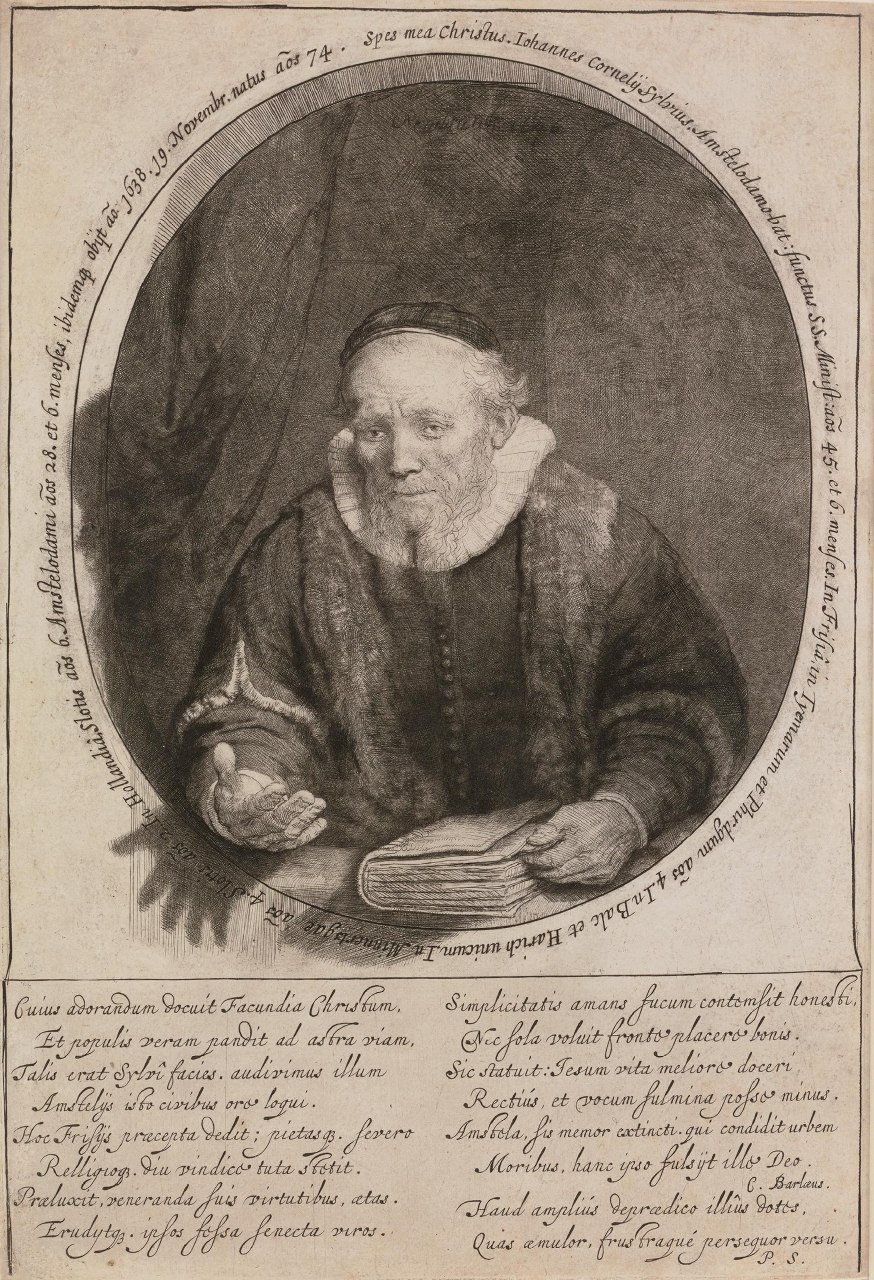 Spes mea Christus. Iohannes Cornelÿ Sylvius, Amstelodamobat: functus S.S. Minist: aōs 45. et 6. menses. In Frisiâ, in Tyemarum et Phirdgum aōs 4. In Balc et Harich unicum. In Minnertsgae aōs 4. Slotis aōs 2. In Hollandia, Slotis aōs 6. Amstelodami aōs 28. et 6. menses, ibidemqȝ obÿt aō. 1638. 19. Novembr. natus aōs 74.
Cuius adorandum docuit Facundia Christum,
Et populis veram pandit ad astra viam,
Talis erat Sylvî facies. audivimus illum
Amstelÿs isto civibus ore loqui.
Hoc Frisÿs præcepta dedit; pietasqȝ. severo
Relligioqȝ. diu vindice tuta stetit.
Præluxit, veneranda suis virtutibus, ætas.
Erudÿtqȝ. ipsos fessa senecta viros.
Simplicitatis amans fucum contemsit honesti,
Nec sola voluit fronte placere bonis.
Sic statuit: Iesum vita meliore doceri
Rectiùs, et vocum fulmina posse minus.
Amstela, sis memor extincti. qui condidit urbem
Moribus, hanc ipso fulsÿt ille Deo.
C. Barlæus.
Haud ampliùs deprædico illîus dotes,
Quas æmulor, frustraqué persequor versu.
P. S.